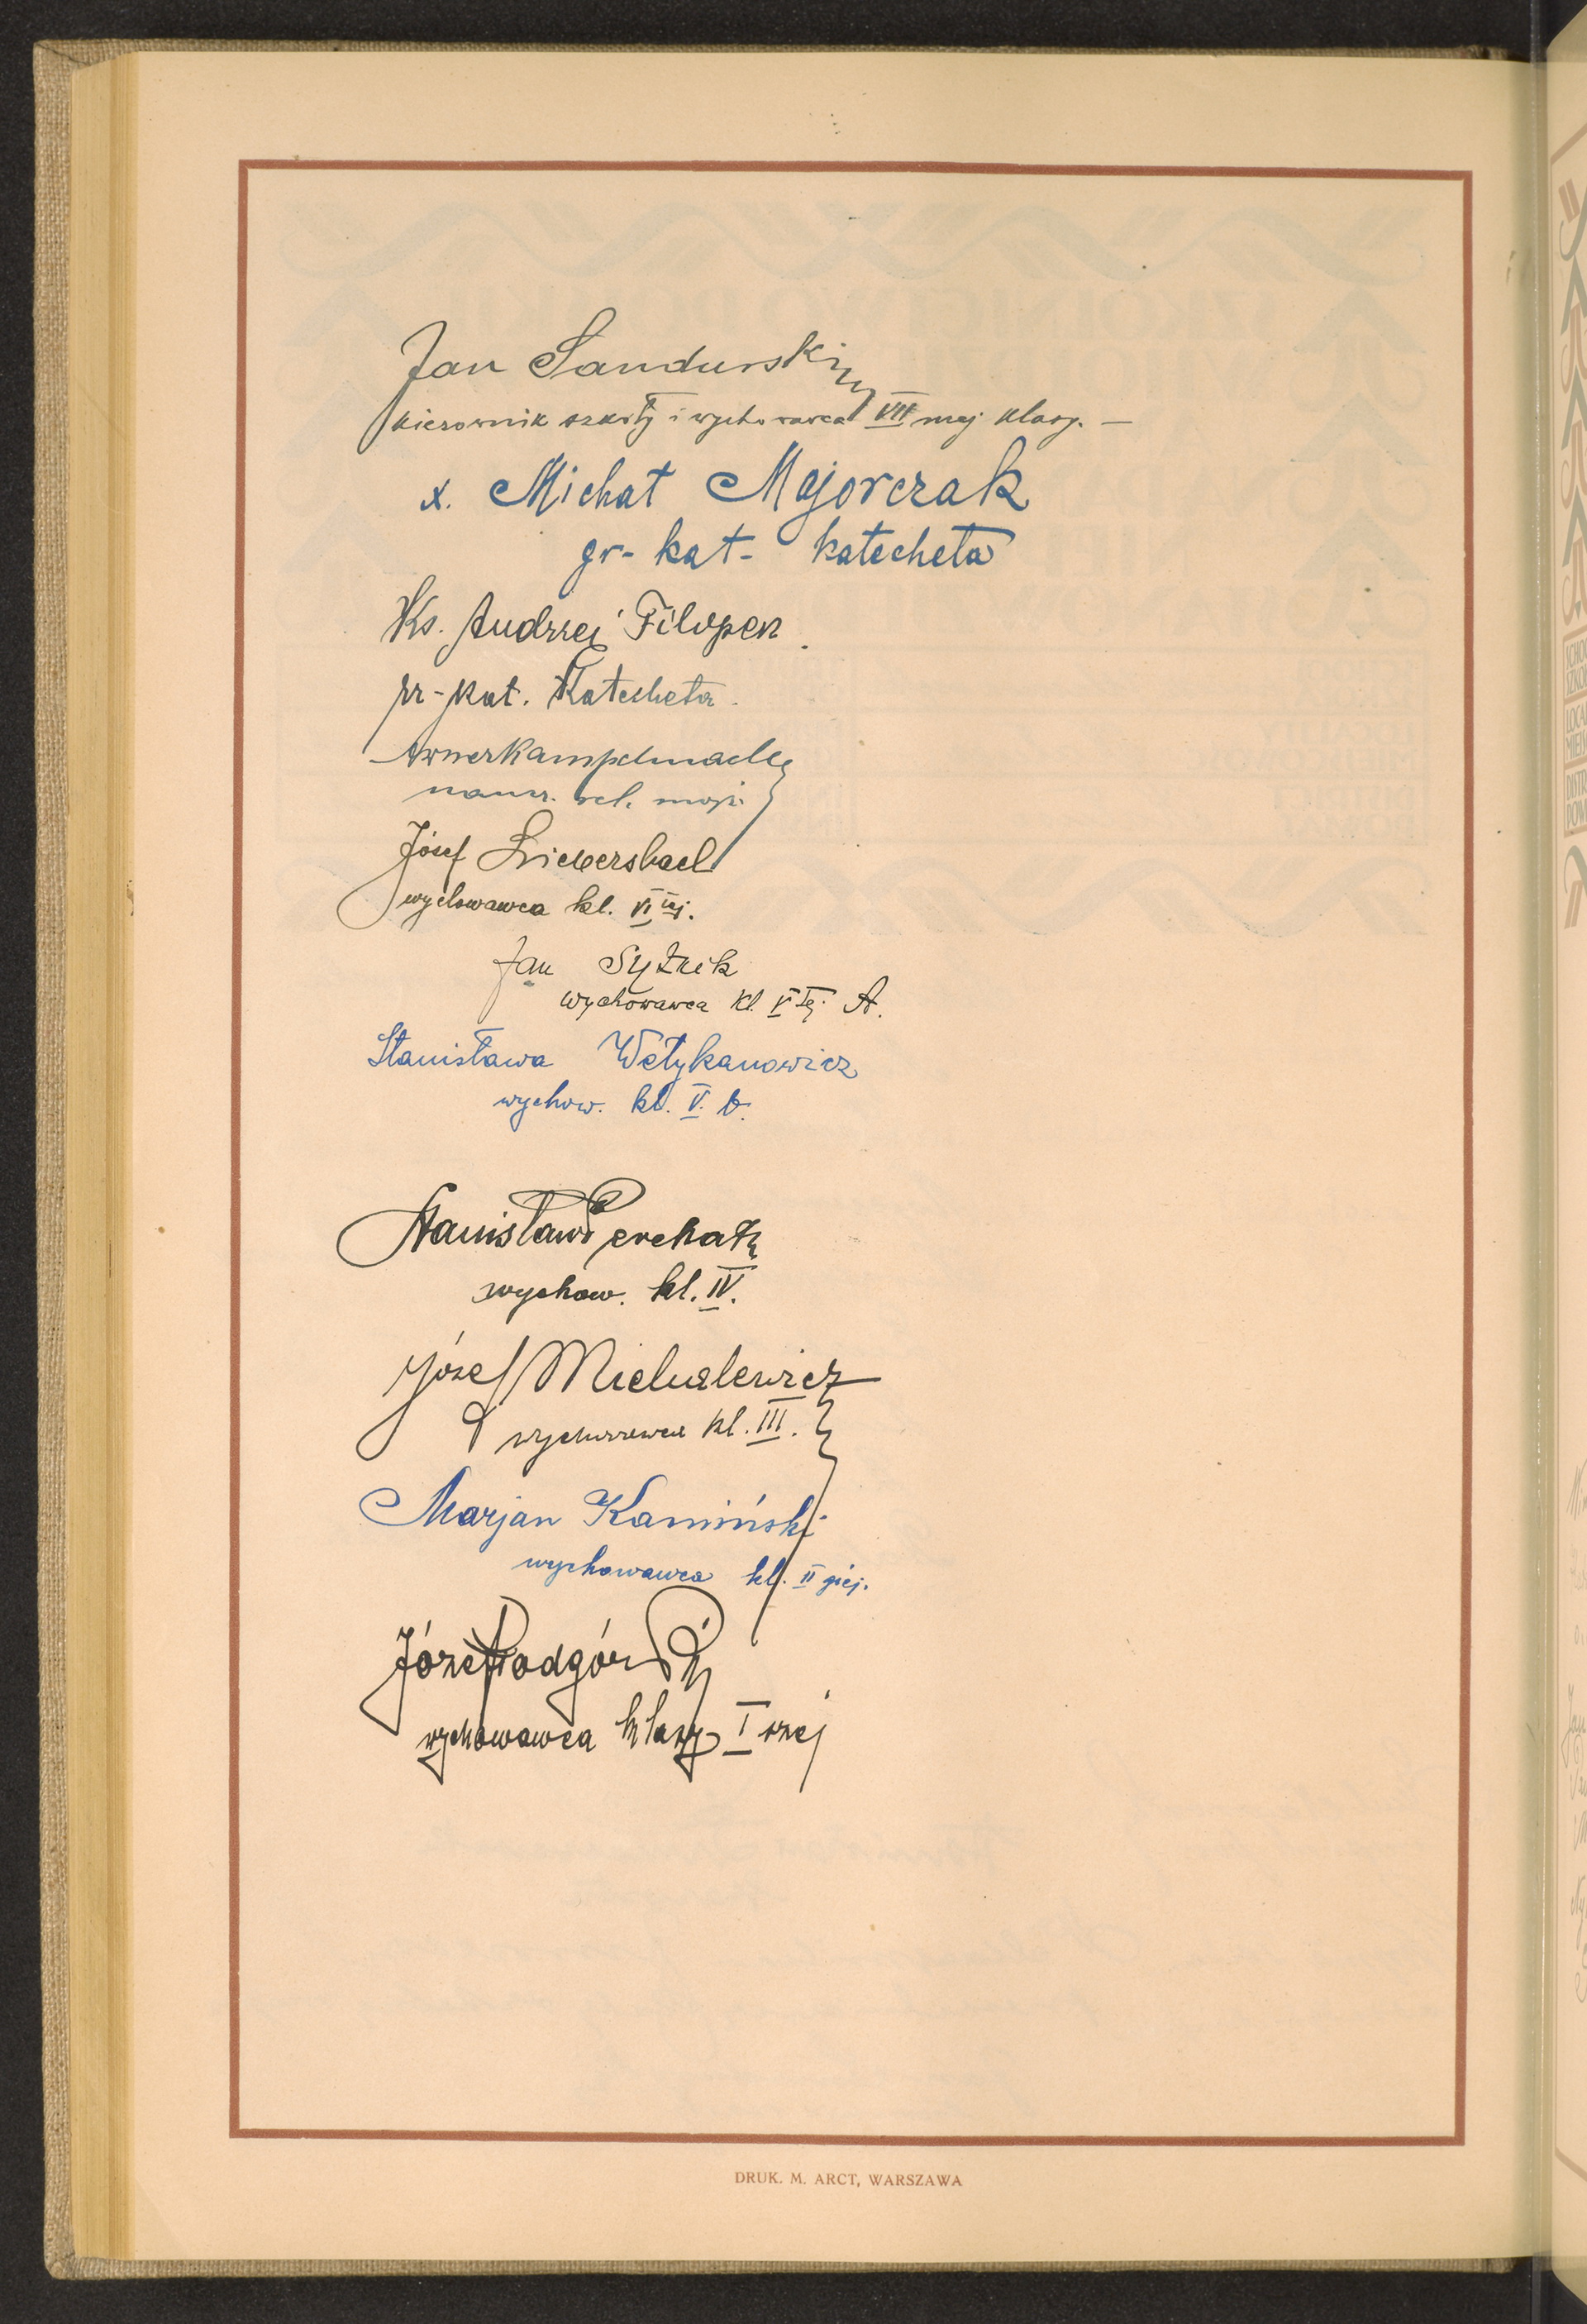 Jan Sandurski
kierownik szkoły i wychowawca VII mej klasy. —
x. Michał Majorczak
gr- kat- katecheta
Ks. Andrzej Filopek
rz-kat. Katecheta.
naucz. rel. mojż.
Józef
wychowawca kl. VI tej.
Jan Syźnik
wychowawca kl. V tej A.
Stanisława Wełykanowicz
wychow. kl. V. b.
Stanisław Perchał
wychow. kl. IV.
Józef Michalewicz
wychowawca kl. III.
Marjan Kamiński
wychowawca kl. II giej.
Józef Podgórski
wychowawca klasy I szej
DRUK. M. ARCT, WARSZAWA